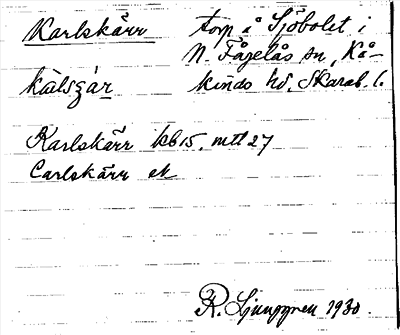 Karlskärr torp å Sjöbolet i
N. Fågelås sn, Kå-
kinds hd, Skarab. l.
kālsʒár
Karlskärr kb 15, mtl 27
Carlskärr ek
R. Ljunggren 1930.